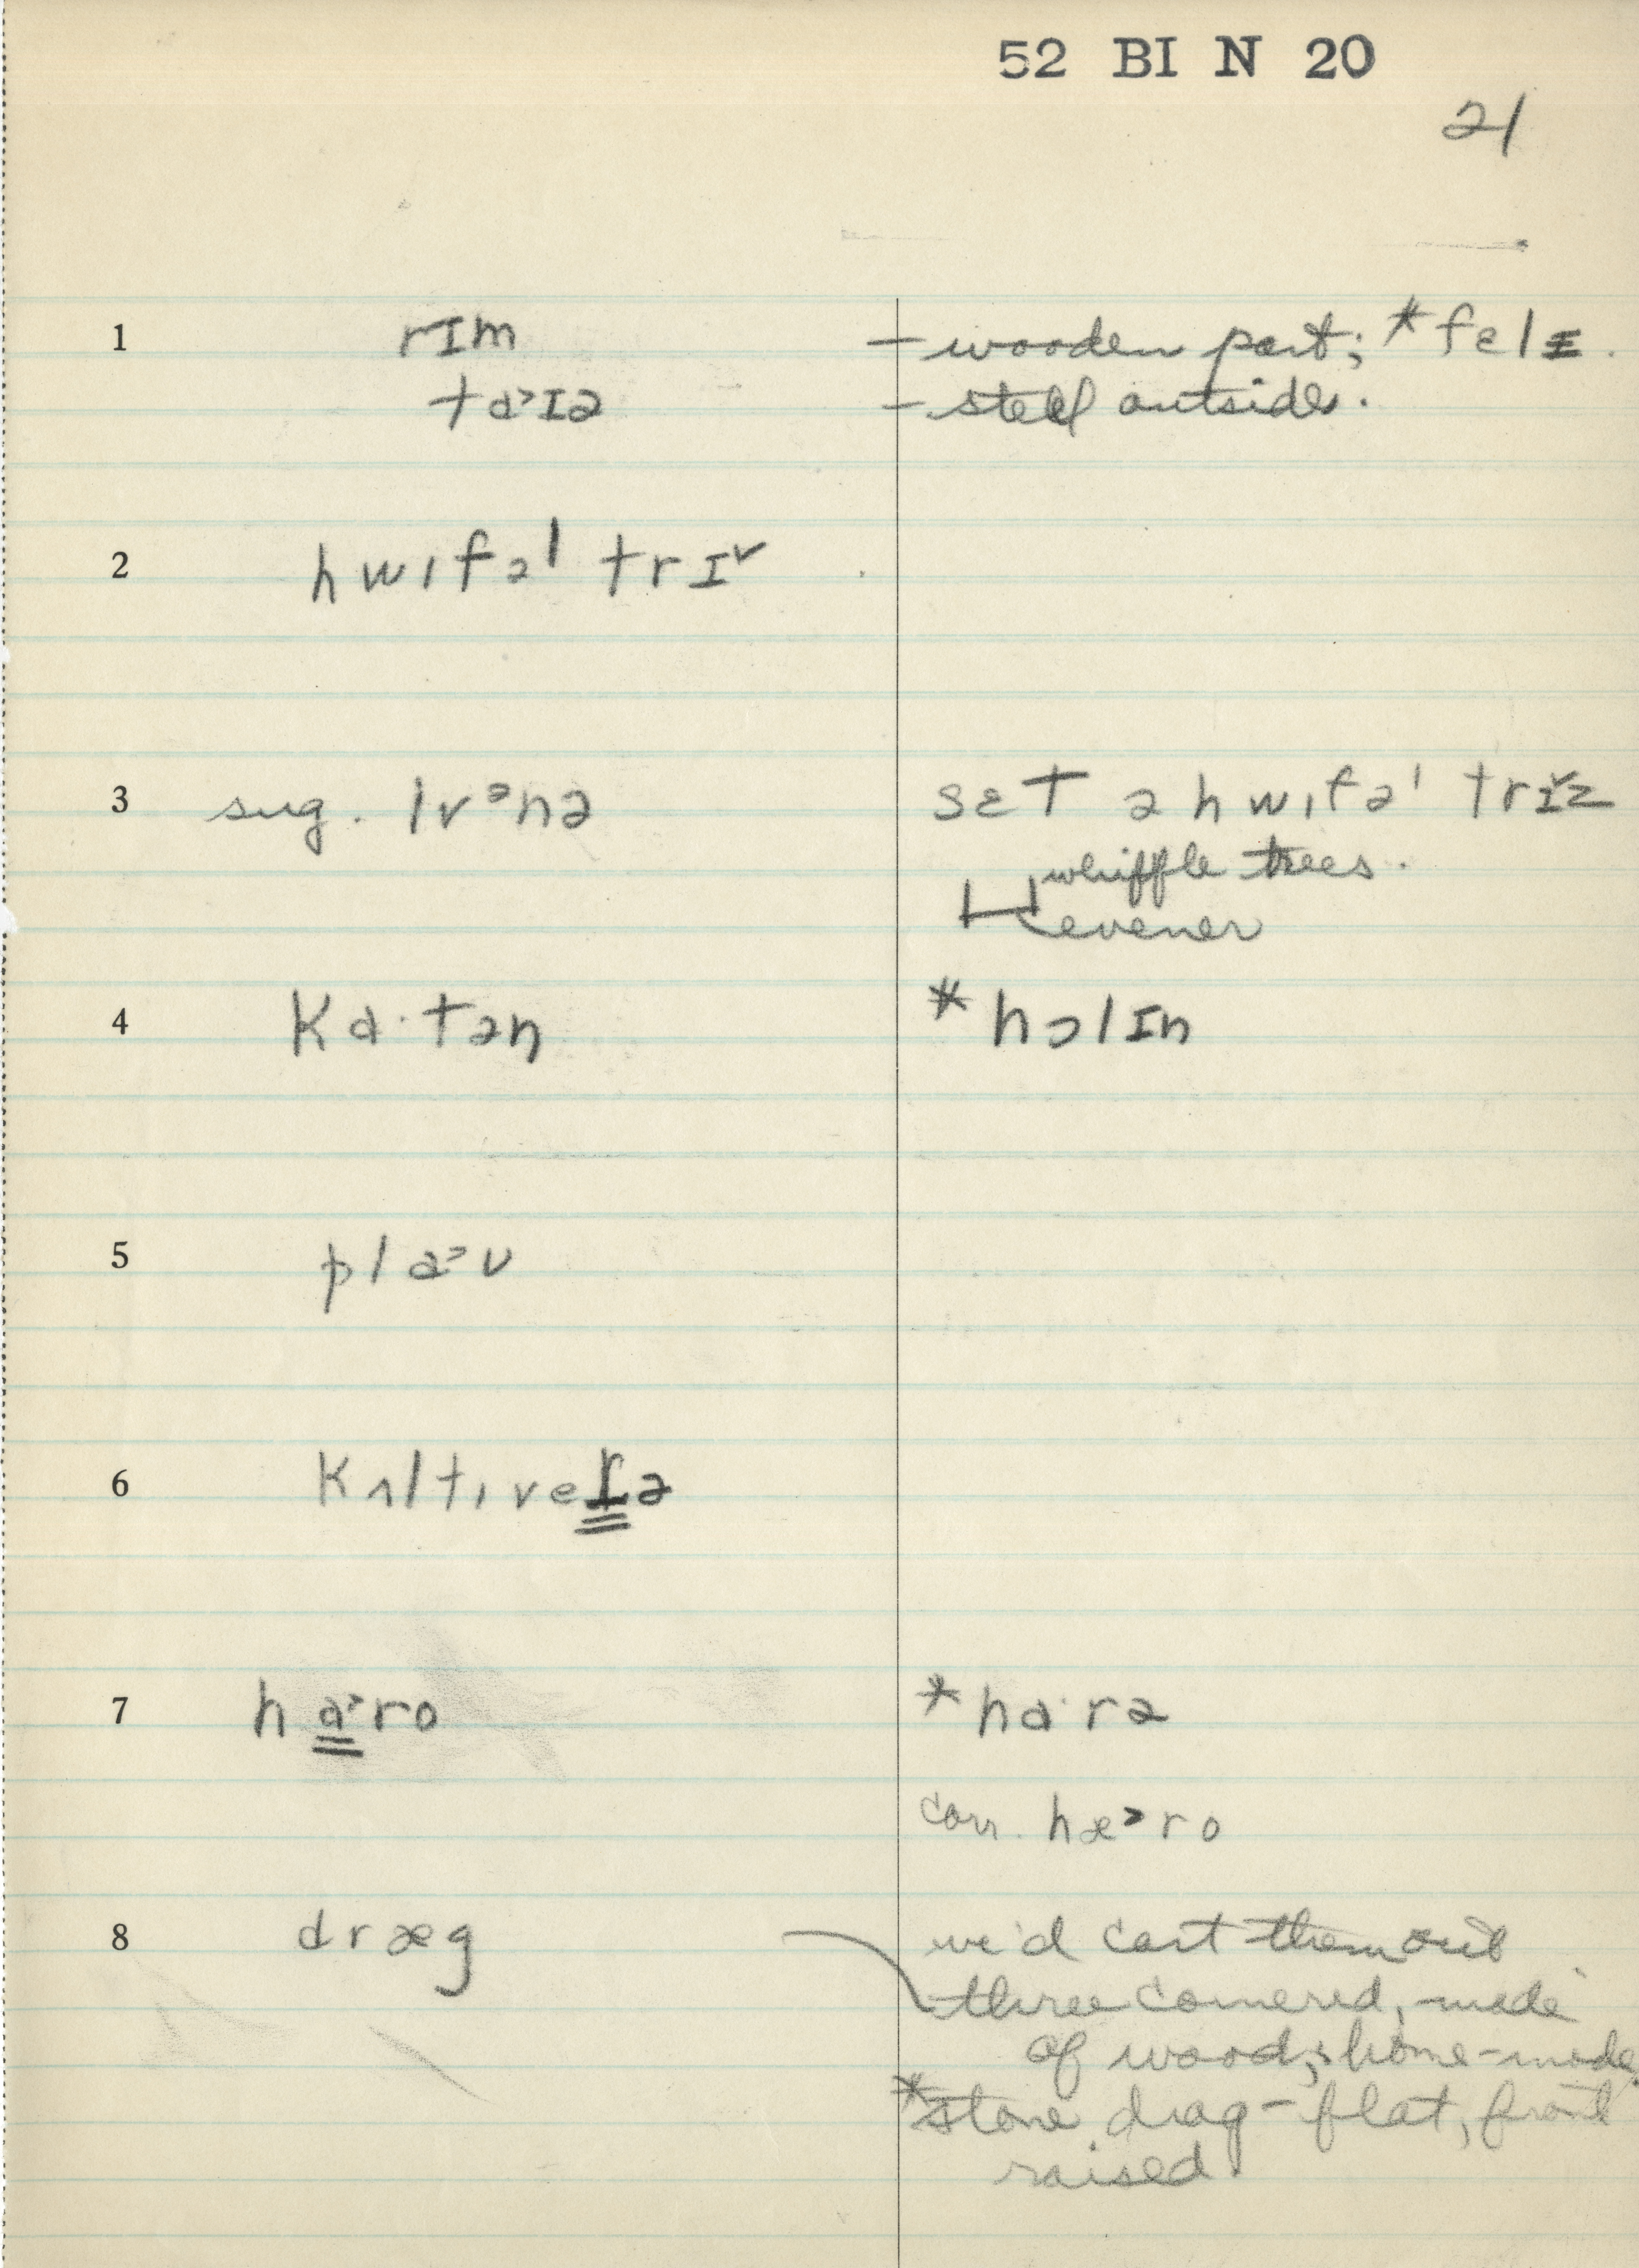 52 BI N 20
21
1 rɪm — wooden part; *fɛlɪ.
ta˃ɪə — steel outside.
2 hwɪfəl trɪ˅
3 sug. ɪv ᵊnə sɛt ə hwɪfəl trɪ˅z
whiffle trees.
evener
4 ka·tən *hɔlɪn
5 pla˃ʊ
6 kʌltɪveɾə
7 ha˃ro *ha·rə
corr. hæ˃ro
8 dræg we'd cart them out
three cornered, made
of wood; home-made.
*stone drag – flat, front
raised.